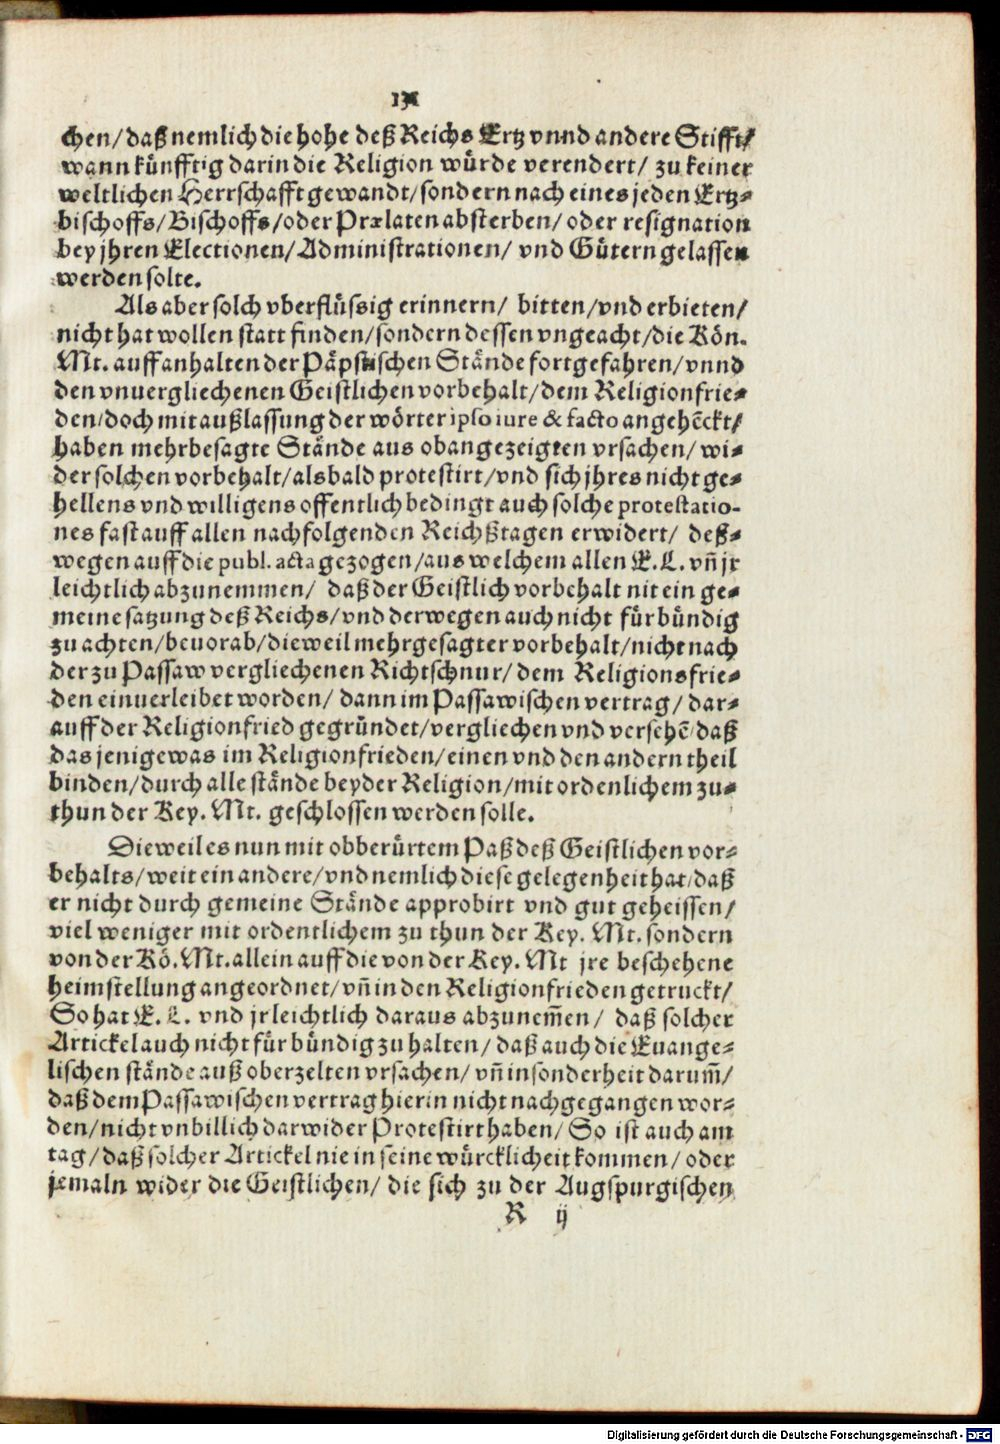 131
chen/ daß nemlich die hohe deß Reichs Ertz vnnd andere Stifft/
wann künfftig darin die Religion würde verendert/ zu keiner
weltlichen Herrschafft gewandt/ sondern nach eines jeden Ertz-
bischoffs/ Bischoffs/ oder Prælaten absterben/ oder resignation
bey jhren Electionen/ Administrationen/ vnd Gütern gelassen
werden solte.
Als aber solch vberflüssig erinnern/ bitten/ vnd erbieten/
nicht hat wollen statt finden/ sondern dessen vngeacht/ die Kön.
Mt. auff anhalten der Päpstischen Stände fortgefahren/ vnnd
den vnuergliechenen Geistlichen vorbehalt/ dem Religionfrie-
den/ doch mit außlassung der wörter ipso iure & facto angehẽckt/
haben mehrbesagte Stände aus obangezeigten vrsachen/ wi-
der solchen vorbehalt/ alsbald protestirt/ vnd sich jhres nicht ge-
hellens vnd willigens offentlich bedingt auch solche protestatio-
nes fast auff allen nachfolgenden Reichßtagen erwidert/ deß-
wegen auff die publ. acta gezogen/ aus welchem allen E. L. vñ jr
leichtlich abzunemmen/ daß der Geistlich vorbehalt nit ein ge-
meine satzung deß Reichs/ vnd derwegen auch nicht für bündig
zu achten/ beuorab/ dieweil mehrgesagter vorbehalt/ nicht nach
der zu Passaw vergliechenen Richtschnur/ dem Religionsfrie-
den einuerleibet worden/ dann im Passawischen vertrag/ dar-
auff der Religionfried gegründet/ vergliechen vnd versehẽ/ daß
das jenige was im Religionfrieden/ einen vnd den andern theil
binden/ durch alle stände beyder Religion/ mit ordenlichem zu-
thun der Key. Mt. geschlossen werden solle.
Dieweil es nun mit obberürtem Paß deß Geistlichen vor-
behalts/ weit ein andere/ vnd nemlich diese gelegenheit hat/ daß
er nicht durch gemeine Stände approbirt vnd gut geheissen/
viel weniger mit ordentlichem zu thun der Key. Mt. sondern
von der Kö. Mt. allein auff die von der Key. Mt jre beschehene
heimstellung angeordnet/ vñ in den Religionfrieden getruckt/
So hat E. L. vnd jr leichtlich daraus abzunem̃en/ daß solcher
Artickel auch nicht für bündig zu halten/ daß auch die Euange-
lischen stände auß oberzelten vrsachen/ vñ insonderheit darum̃/
daß dem Passawischen vertrag hierin nicht nachgegangen wor-
den/ nicht vnbillich darwider Protestirt haben/ So ist auch am
tag/ daß solcher Artickel nie in seine würcklicheit kommen/ oder
jemaln wider die Geistlichen/ die sich zu der Augspurgischen
R ij
Digitalisierung gefördert durch die Deutsche Forschungsgemeinschaft - DFG